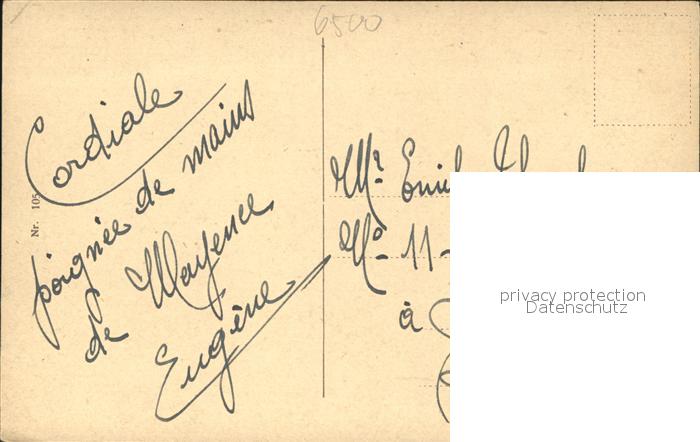 6500
Cordiale
poignée de mains
de Mayence
Eugène
Nr. 105
Mr. Emile
No. 11-
à
privacy protection
Datenschutz